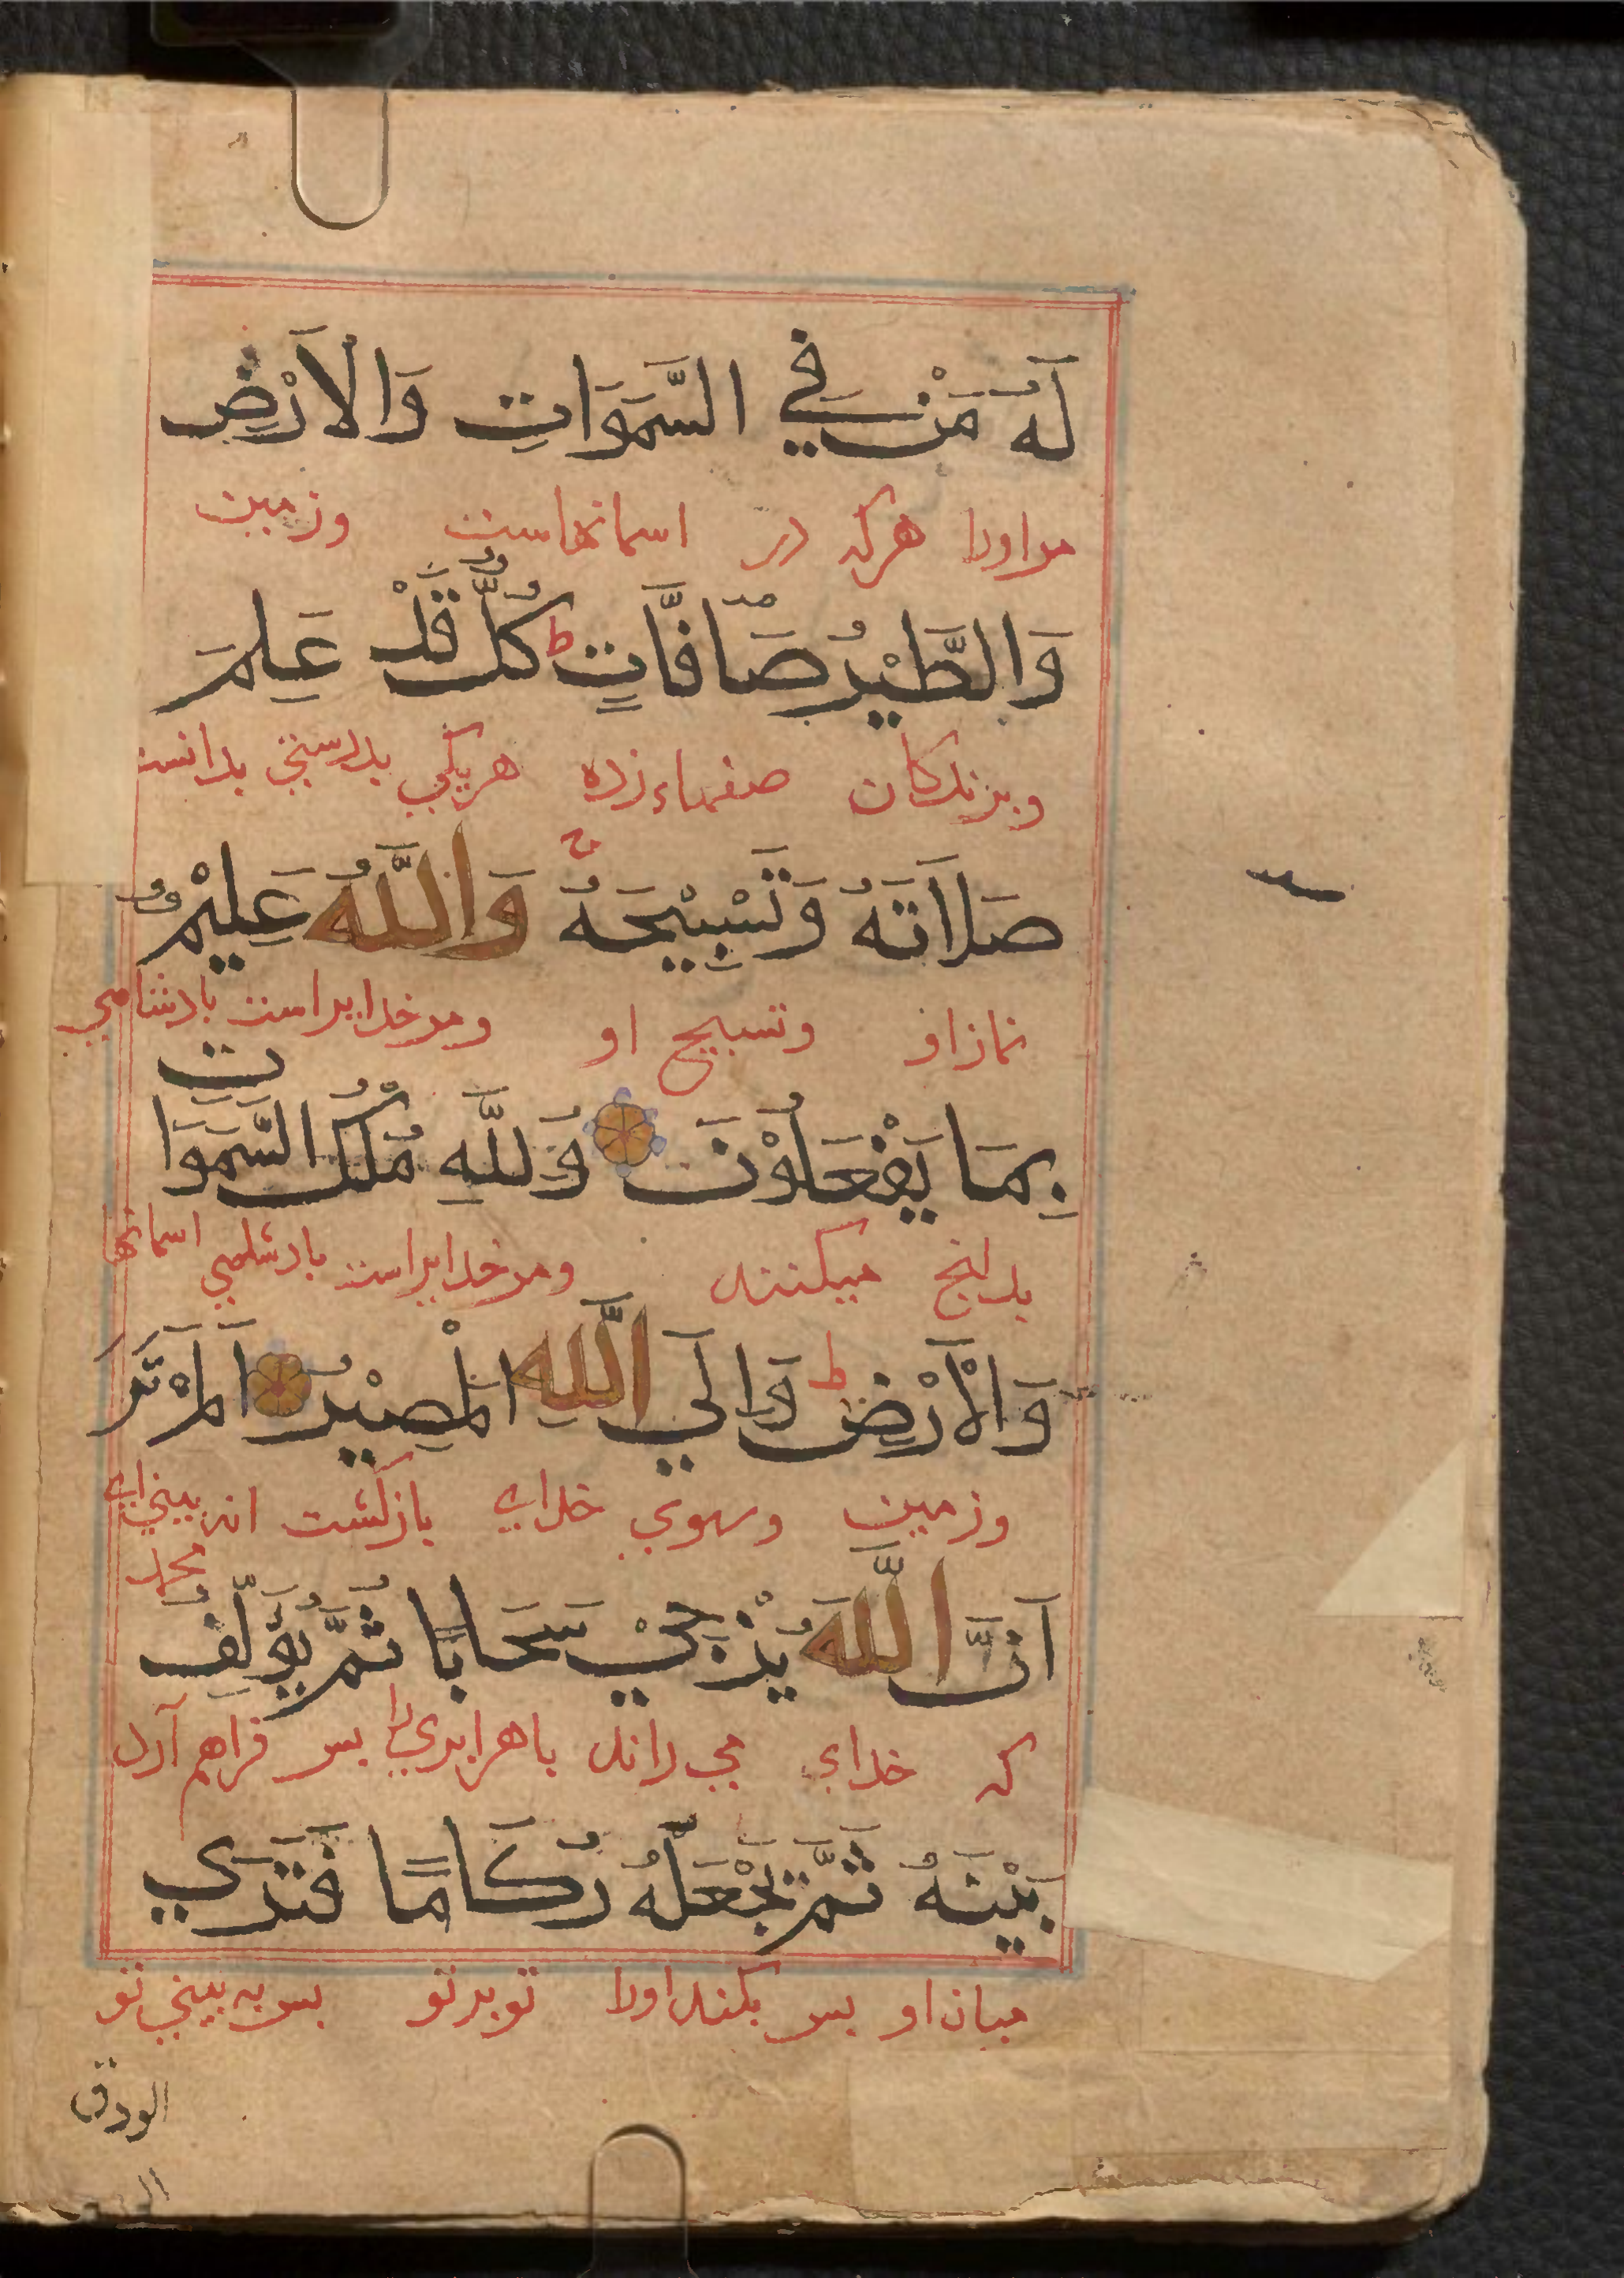 لَهُ مَنْ فِي السَّمَوَاتِ وَالْاَرْضِ
مر اورا هرکه در اسمانهاست وزمین
وَالطَّيْرُ صَآفَّاتٍ ط كُلٌّ قَدْ عَلِمَ
وپرندکان صفهاء زده هریکی بدرستی بدانست
صَلَاتَهُ وَتَسْبِيْحَهُ وَاللَّهُ عَلِيْمٌ
نماز او وتسبیح او ومر خدایراست بادشاهی
بِمَا يَفْعَلُوْنَ وَلِلَّهِ مُلْكُ السَّمَوَاتِ
بدانچ میکنند ومر خدایراست بادشاهی اسمانها
وَالْاَرْضِ ط وَاِلَي اللَّهِ الْمَصِيْرُ اَلَمْ تَرَ
وزمین وسوی خدای بازکشت انه بینی ای
محمد
اَنَّ اللَّهَ يُزْجِيْ سَحَابًا ثُمَّ يُؤَلِّفُ
که خداء می راند باهر ابری را پس فراهم آرد
بَيْنَهُ ثُمَّ يَجْعَلُهُ رُكَامًا فَتَرَي
میان او پس بکند اورا توبرتو پس به بینی تو
الودق